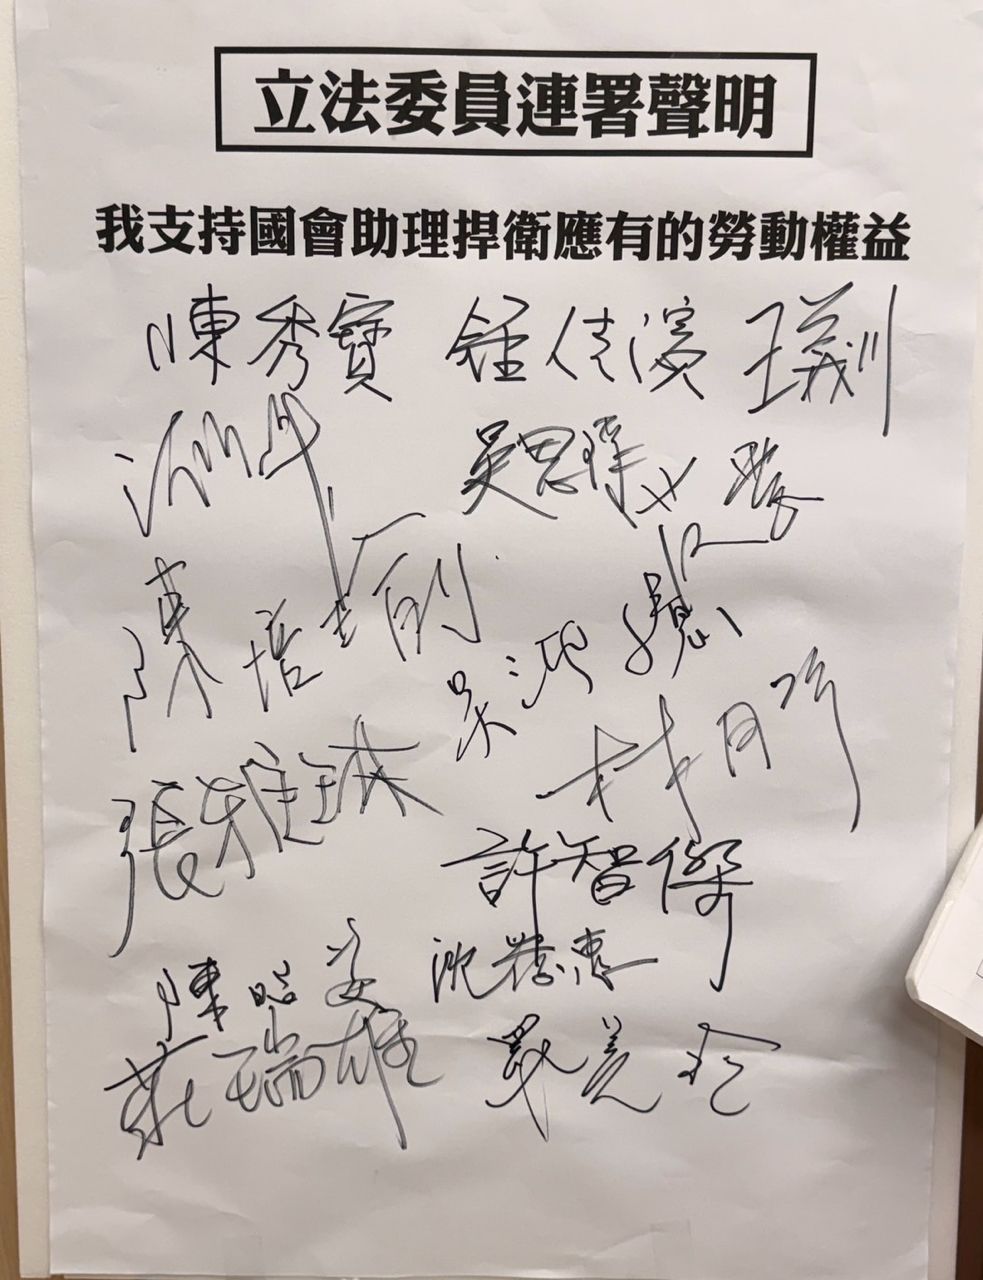 立法委員連署聲明
我支持國會助理捍衛應有的勞動權益
陳秀寳 鍾佳濱 王義川
吳思瑤
陳培瑜
吳沛憶
張雅琳 林月琴
許智傑
陳昭姿 沈發惠
莊瑞雄 羅美玲